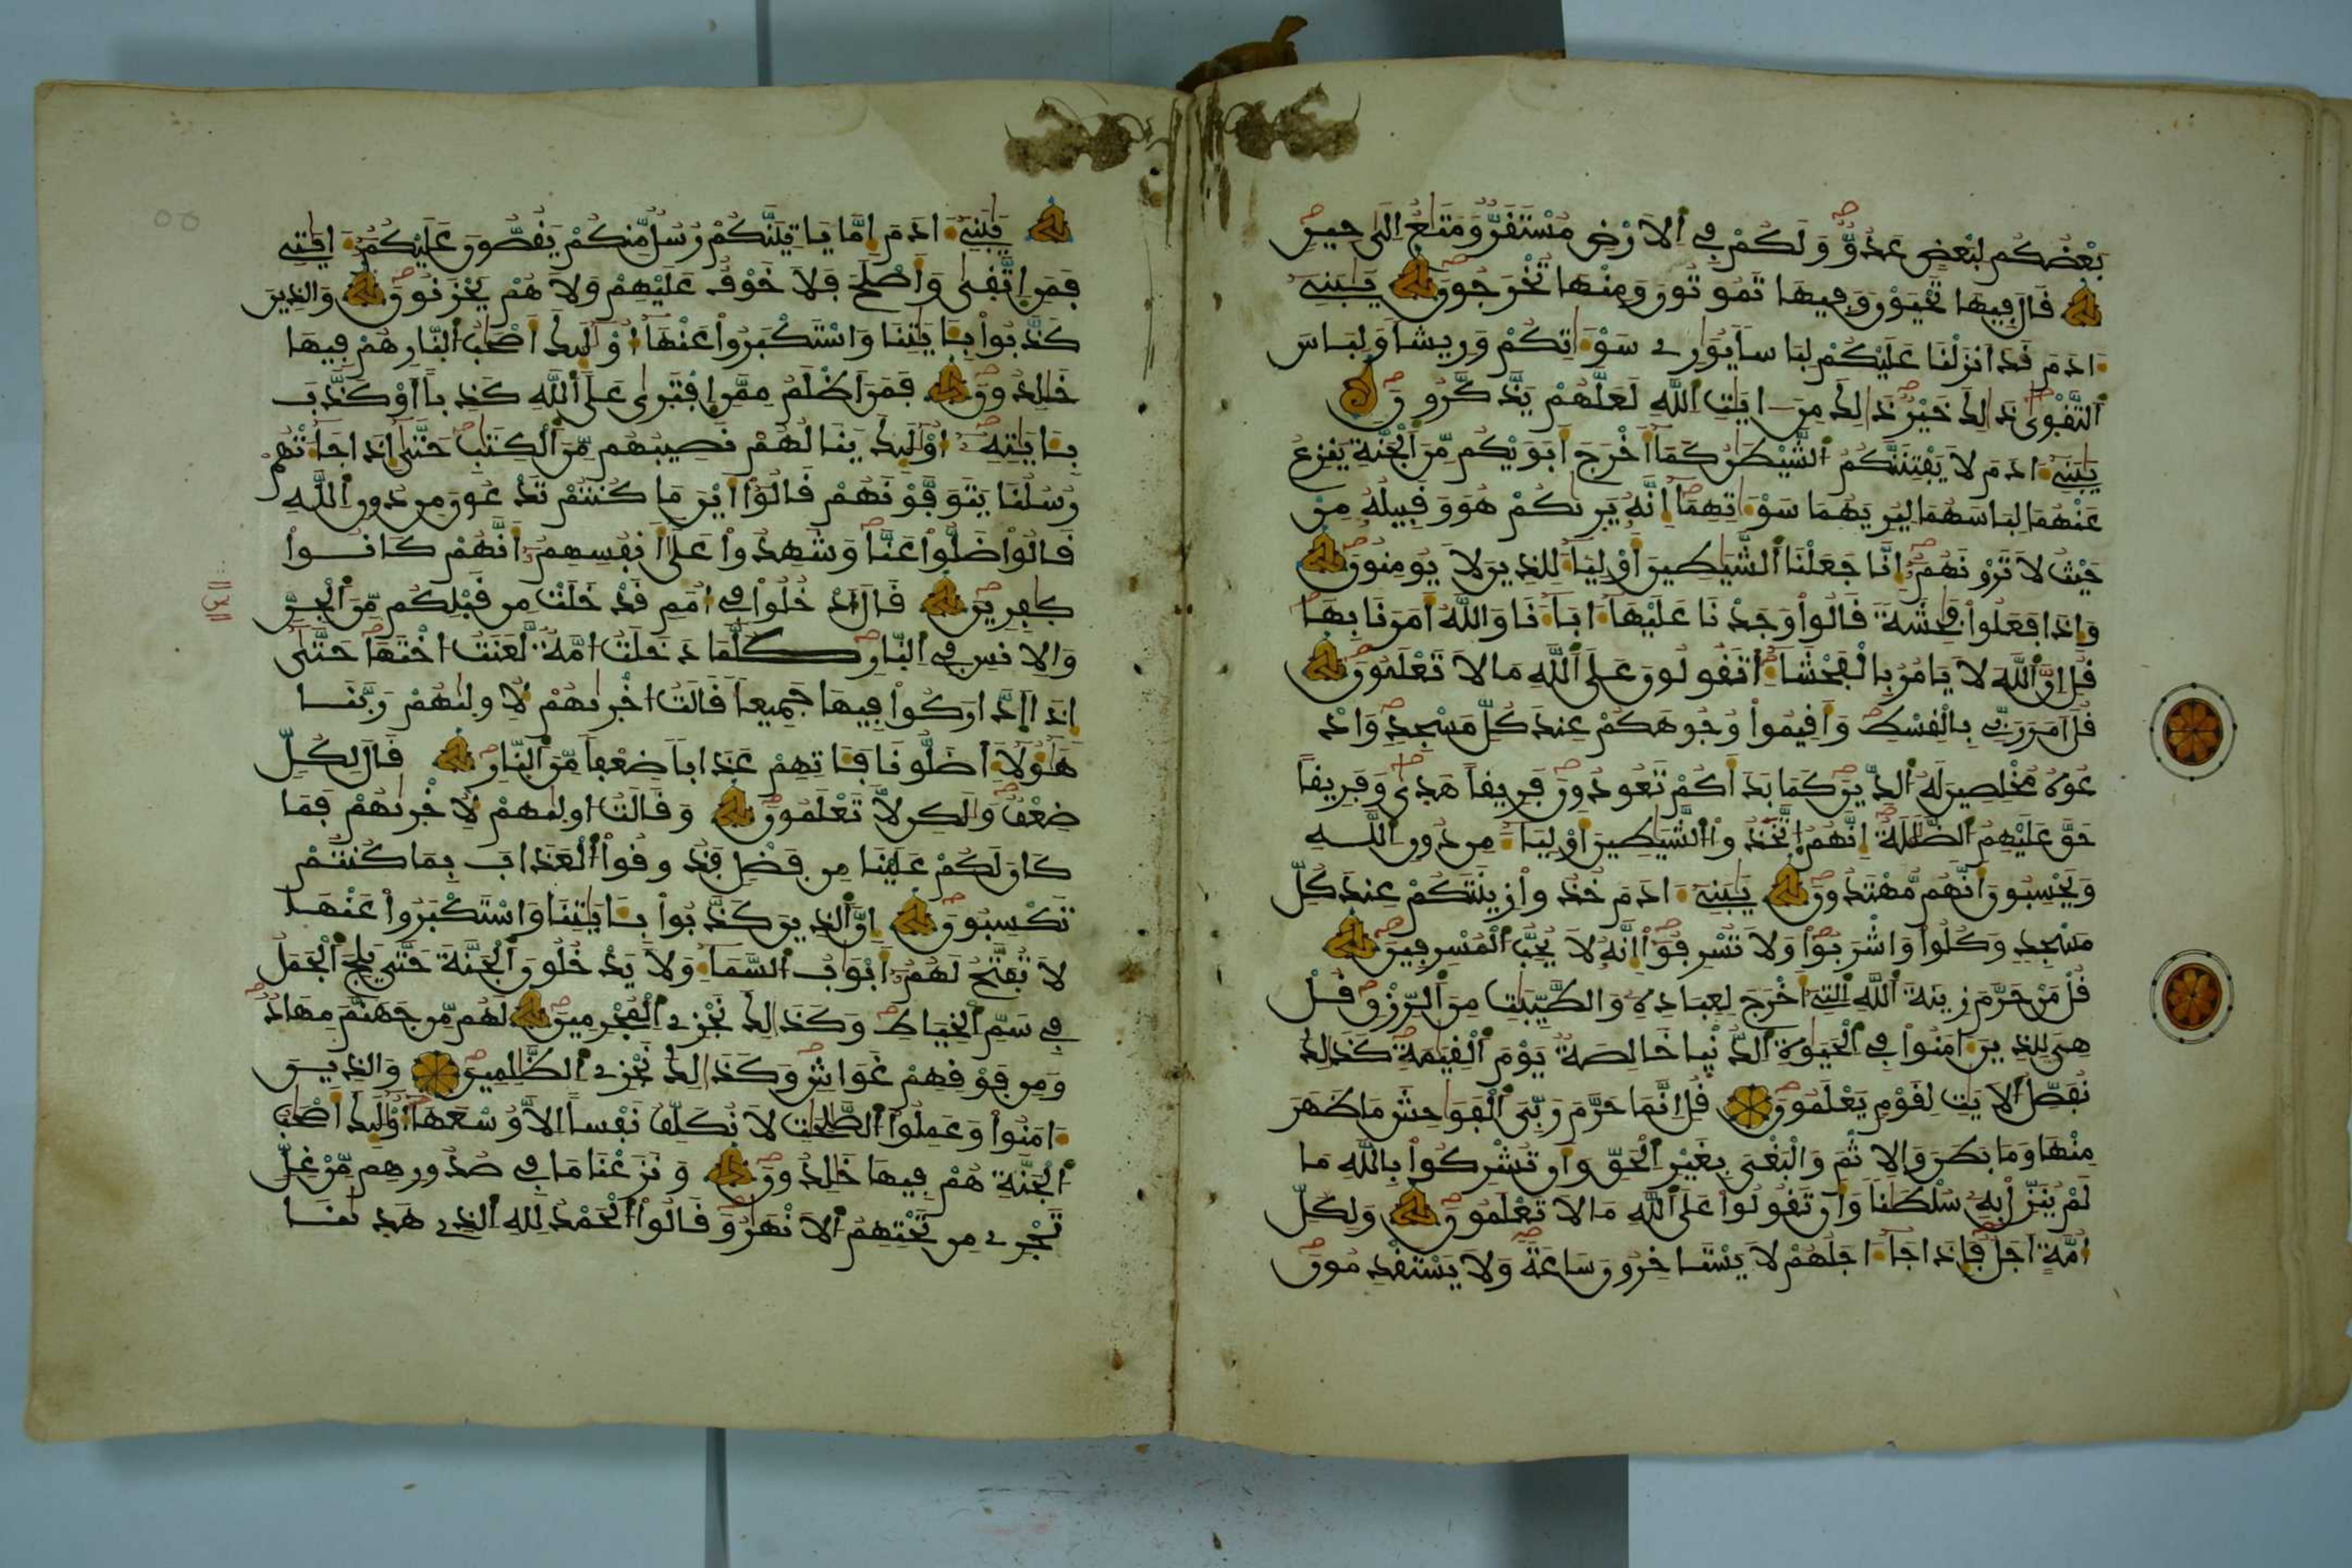 بَعْضُكُمْ لِبَعْضٍ عَدُوٌّ وَلَكُمْ فِي اَلَارْضِ مُسْتَقَرٌّ وَمَتَٰعٌ اِلَىٰ حِينٍ
قَالَ فِيهَا تَحْيَوْنَ وَفِيهَا تَمُوتُونَ وَمِنْهَا تُخْرَجُونَ يَٰبَنِے
ءَادَمَ قَدَ اَنزَلْنَا عَلَيْكُمْ لِبَاساً يُوَٰرِے سَوْءَٰتِكُمْ وَرِيشاً وَلِبَاسَ
اَلتَّقْوَىٰ ذَٰلِكَ خَيْرٌ ذَٰلِكَ مِنَ ـايَٰتِ اِللَّهِ لَعَلَّهُمْ يَذَّكَّرُونَ
يَٰبَنِے ءَادَمَ لَا يَفْتِنَنَّكُمُ اُلشَّيْطَٰنُ كَمَا أَخْرَجَ أَبَوَيْكُم مِّنَ اَلْجَنَّةِ يَنزِعُ
عَنْهُمَا لِبَاسَهُمَا لِيُرِيَهُمَا سَوْءَٰتِهِمَا إِنَّهُ يَرَىٰكُمْ هُوَ وَقَبِيلُهُ مِنْ
حَيْثُ لَا تَرَوْنَهُمُ إِنَّا جَعَلْنَا اَلشَّيَٰطِينَ أَوْلِيَاءَ لِلذِينَ لَا يُومِنُونَ
وَإِذَا فَعَلُواْ فَٰحِشَةً قَالُواْ وَجَدْنَا عَلَيْهَا ءَابَاءَنَا وَاللَّهُ أَمَرَنَا بِهَا
قُلِ اِنَّ اَللَّهَ لَا يَامُرُ بِالْفَحْشَاءِ اَتَقُولُونَ عَلَى اَللَّهِ مَا لَا تَعْلَمُونَ
قُلَ اَمَرَ رَبِّے بِالْقِسْطِ وَأَقِيمُواْ وُجُوهَكُمْ عِندَ كُلِّ مَسْجِدٍ وَادْ
عُوهُ مُخْلِصِينَ لَهُ اُلدِّينَ كَمَا بَدَأَكُمْ تَعُودُونَ فَرِيقاً هَدَىٰ وَفَرِيقاً
حَقَّ عَلَيْهِمُ اُلضَّلَٰلَةُ إِنَّهُمُ اُتَّخَذُواْ اُلشَّيَٰطِينَ أَوْلِيَاءَ مِن دُونِ اِللَّهِ
وَيَحْسِبُونَ أَنَّهُم مُّهْتَدُونَ يَٰبَنِے ءَادَمَ خُذُواْ زِينَتَكُمْ عِندَ كُلِّ
مَسْجِدٍ وَكُلُواْ وَاشْرَبُواْ وَلَا تُسْرِفُواْ إِنَّهُ لَا يُحِبُّ اُلْمُسْرِفِينَ
قُلْ مَنْ حَرَّمَ زِينَةَ اَللَّهِ اِلتِے أَخْرَجَ لِعِبَادِهِ وَالطَّيِّبَٰتِ مِنَ اَلرِّزْقِ قُلْ
هِيَ لِلذِينَ ءَامَنُواْ فِي اِلْحَيَوٰةِ اِلدُّنْيَا خَالِصَةٌ يَوْمَ اَلْقِيَٰمَةِ كَذَٰلِكَ
نُفَصِّلُ اُلَايَٰتِ لِقَوْمٍ يَعْلَمُونَ قُلِ اِنَّمَا حَرَّمَ رَبِّيَ اَلْفَوَٰحِشَ مَا ظَهَرَ
مِنْهَا وَمَا بَطَنَ وَالِاثْمَ وَالْبَغْيَ بِغَيْرِ اِلْحَقِّ وَأَن تُشْرِكُواْ بِاللَّهِ مَا
لَمْ يُنَزِّلْ بِهِ سُلْطَٰناً وَأَن تَقُولُواْ عَلَى اَللَّهِ مَا لَا تَعْلَمُونَ وَلِكُلِّ
أُمَّةٍ اَجَلٌ فَإِذَا جَاءَ اجَلُهُمْ لَا يَسْتَاخِرُونَ سَاعَةً وَلَا يَسْتَقْدِمُونَ
يَٰبَنِے ءَادَمَ إِمَّا يَاتِيَنَّكُمْ رُسُلٌ مِّنكُمْ يَقُصُّونَ عَلَيْكُمُ ءَايَٰتِے
فَمَنِ اِتَّقَىٰ وَأَصْلَحَ فَلَا خَوْفٌ عَلَيْهِمْ وَلَا هُمْ يَحْزَنُونَ وَالذِينَ
كَذَّبُواْ بِـَٔايَٰتِنَا وَاسْتَكْبَرُواْ عَنْهَا أُوْلَٰئِكَ أَصْحَٰبُ اُلنَّارِ هُمْ فِيهَا
خَٰلِدُونَ فَمَنَ اَظْلَمُ مِمَّنِ اِفْتَرَىٰ عَلَى اَللَّهِ كَذِباً اَوْ كَذَّبَ
بِـَٔايَٰتِهِ أُوْلَٰئِكَ يَنَالُهُمْ نَصِيبُهُم مِّنَ اَلْكِتَٰبِ حَتَّىٰ إِذَا جَاءَتْهُمْ
رُسُلُنَا يَتَوَفَّوْنَهُمْ قَالُواْ أَيْنَ مَا كُنتُمْ تَدْعُونَ مِن دُونِ اِللَّهِ
قَالُواْ ضَلُّواْ عَنَّا وَشَهِدُواْ عَلَىٰ أَنفُسِهِمُ أَنَّهُمْ كَانُواْ
كَٰفِرِينَ قَالَ اَدْخُلُواْ فِي أُمَمٍ قَدْ خَلَتْ مِن قَبْلِكُم مِّنَ اَلْجِنِّ
وَالِانسِ فِي اِلنَّارِ كُلَّمَا دَخَلَتُ امَّةٌ لَّعَنَتُ اخْتَهَا حَتَّىٰ
إِذَا اَدَّارَكُواْ فِيهَا جَمِيعاً قَالَتُ اخْرَىٰهُمْ لِأُولَىٰهُمْ رَبَّنَا
هَٰؤُلَاءِ اَضَلُّونَا فَـَٔاتِهِمْ عَذَاباً ضِعْفاً مِّنَ اَلنَّارِ قَالَ لِكُلٍّ
ضِعْفٌ وَلَٰكِن لَّا تَعْلَمُونَ وَقَالَتُ اولَىٰهُمْ لِأُخْرَىٰهُمْ فَمَا
كَانَ لَكُمْ عَلَيْنَا مِن فَضْلٍ فَذُوقُواْ اُلْعَذَابَ بِمَا كُنتُمْ
تَكْسِبُونَ إِنَّ اَلذِينَ كَذَّبُواْ بِـَٔايَٰتِنَا وَاسْتَكْبَرُواْ عَنْهَا
لَا تُفَتَّحُ لَهُمُ أَبْوَٰبُ اُلسَّمَاءِ وَلَا يَدْخُلُونَ اَلْجَنَّةَ حَتَّىٰ يَلِجَ اَلْجَمَلُ
فِي سَمِّ اِلْخِيَاطِ وَكَذَٰلِكَ نَجْزِے اِلْمُجْرِمِينَ لَهُم مِّن جَهَنَّمَ مِهَادٌ
وَمِن فَوْقِهِمْ غَوَاشٍ وَكَذَٰلِكَ نَجْزِے اِلظَّٰلِمِينَ وَالذِينَ
ءَامَنُواْ وَعَمِلُواْ اُلصَّٰلِحَٰتِ لَا نُكَلِّفُ نَفْساً اِلَّا وُسْعَهَا أُوْلَٰئِكَ أَصْحَٰبُ
اُلْجَنَّةِ هُمْ فِيهَا خَٰلِدُونَ وَنَزَعْنَا مَا فِي صُدُورِهِم مِّنْ غِلٍّ
تَجْرِے مِن تَحْتِهِمُ اُلَانْهَٰرُ وَقَالُواْ اُلْحَمْدُ لِلهِ اِلذِے هَدَىٰنَا